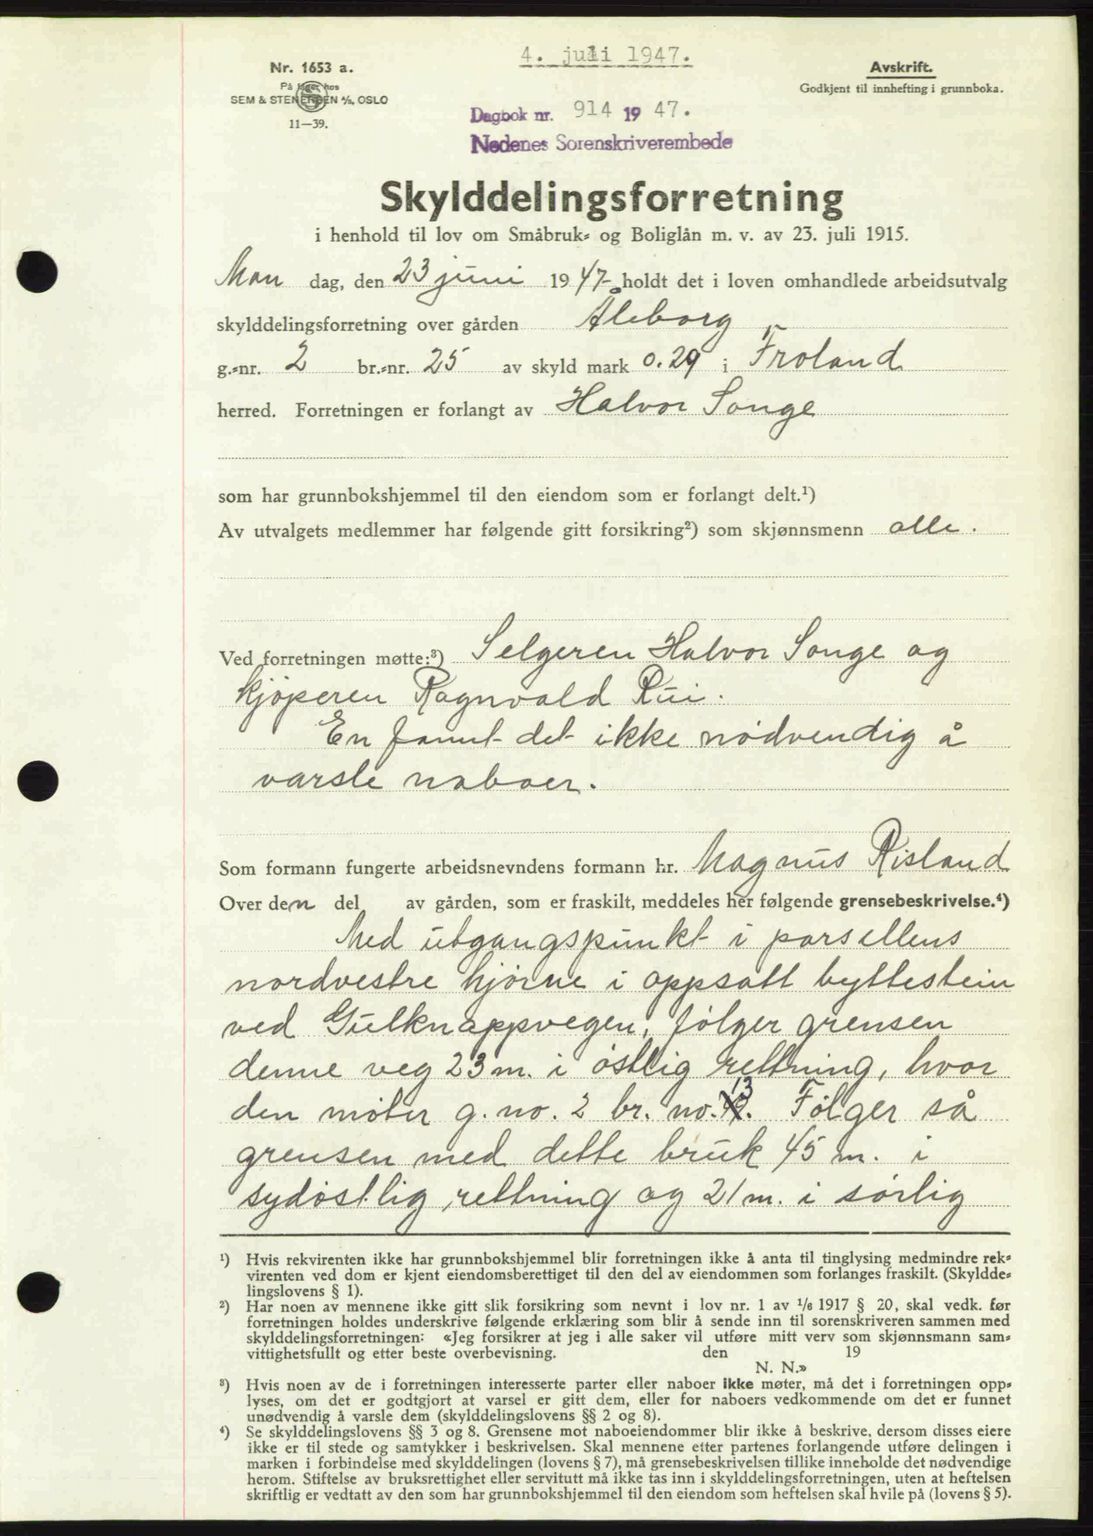 4. juli 1947.
Nr. 1653 a.
På lager hos
SEM & STENERSEN A/S, OSLO
11—39.
Avskrift.
Godkjent til innhefting i grunnboka.
Dagbok nr. 914 1947.
Nedenes Sorenskriverembede
Skylddelingsforretning
i henhold til lov om Småbruk- og Boliglån m. v. av 23. juli 1915.
Man dag, den 23 juni 1947 holdt det i loven omhandlede arbeidsutvalg
skylddelingsforretning over gården Aleborg
g.-nr. 2 br.-nr. 25 av skyld mark 0.29 i Froland
herred. Forretningen er forlangt av Halvor Songe
som har grunnbokshjemmel til den eiendom som er forlangt delt.¹)
Av utvalgets medlemmer har følgende gitt forsikring²) som skjønnsmenn alle.
Ved forretningen møtte:³) Selgeren Halvor Songe og
kjøperen Ragnvald Rui.
En fant det ikke nødvendig å
varsle naboer.
Som formann fungerte arbeidsnevndens formann hr. Magnus Risland
Over den del av gården, som er fraskilt, meddeles her følgende grensebeskrivelse.⁴)
Med utgangspunkt i parsellens
nordvestre hjørne i oppsatt byttestein
ved Gulknappvegen, følger grensen
denne veg 23 m. i østlig rettning, hvor
den møter g. no. 2 br. no. 13. Følger så
grensen med dette bruk 45 m. i
sydøstlig rettning og 21 m. i sørlig
¹) Hvis rekvirenten ikke har grunnbokshjemmel blir forretningen ikke å anta til tinglysing medmindre rek-
virenten ved dom er kjent eiendomsberettiget til den del av eiendommen som forlanges fraskilt. (Skyldde-
lingslovens § 1).
²) Har noen av mennene ikke gitt slik forsikring som nevnt i lov nr. 1 av 1/6 1917 § 20, skal vedk. før
forretningen holdes underskrive følgende erklæring som blir å sende inn til sorenskriveren sammen med
skylddelingsforretningen: «Jeg forsikrer at jeg i alle saker vil utføre mitt verv som skjønnsmann sam-
vittighetsfullt og etter beste overbevisning. den 19
N. N.»
³) Hvis noen av de i forretningen interesserte parter eller naboer ikke møter, må det i forretningen opp-
lyses, om det er godtgjort at varsel er gitt dem, eller for naboers vedkommende om det er funnet
unødvendig å varsle dem (skylddelingslovens §§ 2 og 8).
⁴) Se skylddelingslovens §§ 3 og 8. Grensene mot naboeiendommer blir ikke å beskrive, dersom disses eiere
ikke er til stede og samtykker i beskrivelsen. Skal mennene etter partenes forlangende utføre delingen i
marken i forbindelse med skylddelingen (lovens § 7), må grensebeskrivelsen tillike inneholde det nødvendige
herom. Stiftelse av bruksrettighet eller servitutt må ikke tas inn i skylddelingsforretningen, uten at heftelsen
skriftlig er vedtatt av den som har grunnbokshjemmel til den eiendom som heftelsen skal hvile på (lovens § 5).